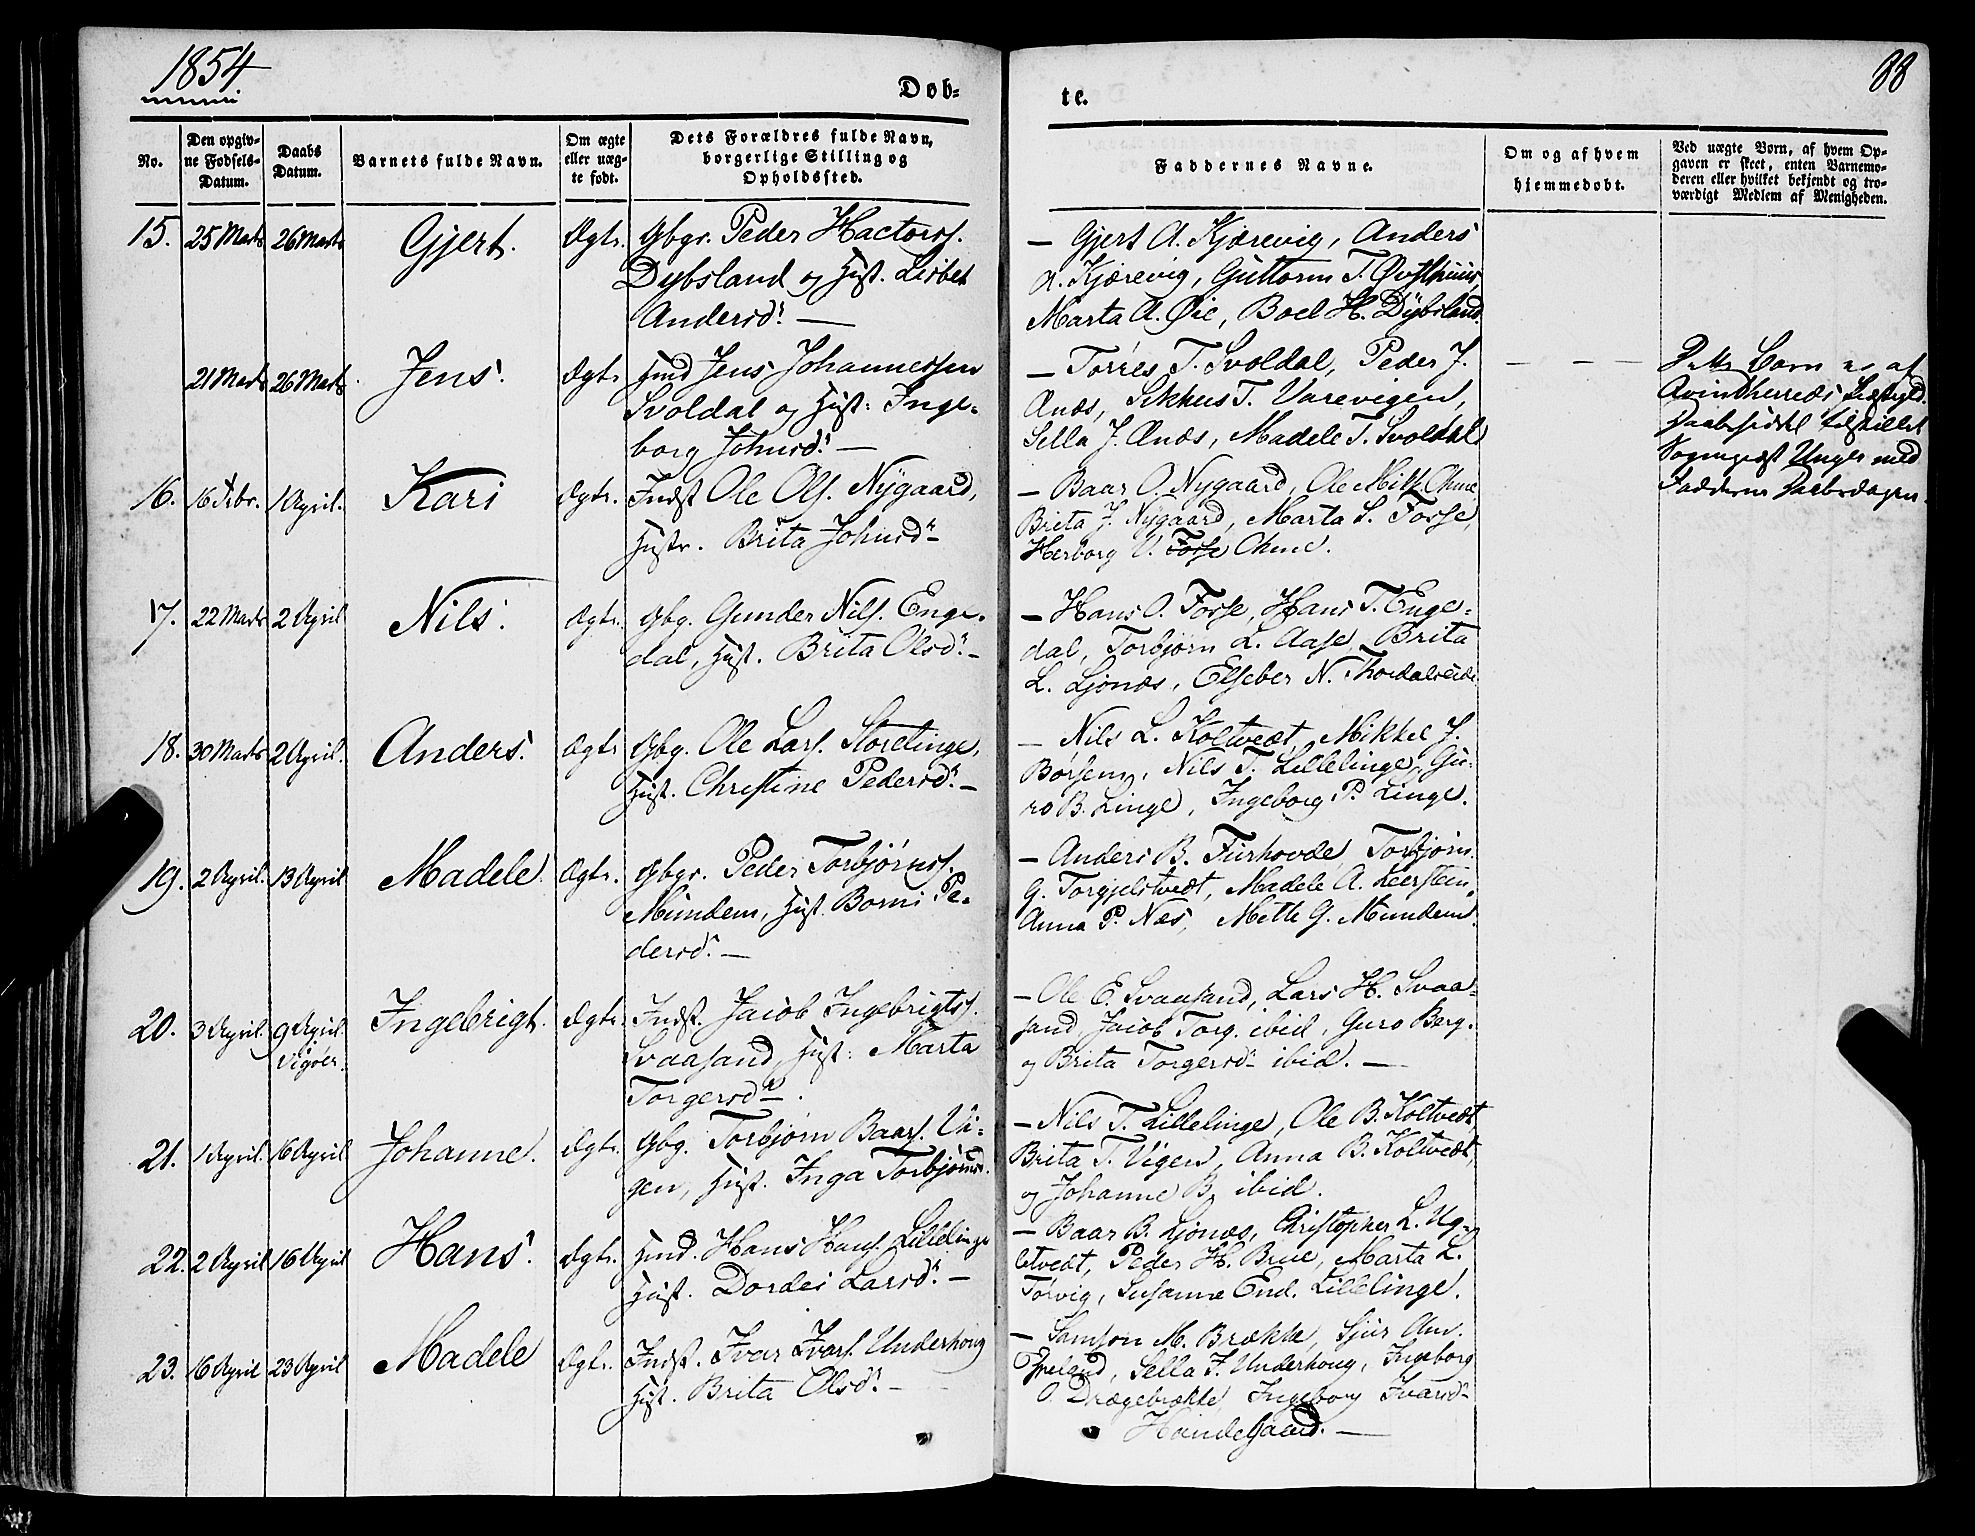 1854
88
Døb-
te.
No.
Den opgiv-
ne Fødsels-
Datum.
Daabs
Datum.
Barnets fulde Navn.
Om ægte
eller uæg-
te født.
Dets Forældres fulde Navn,
borgerlige Stilling og
Opholdssted.
Faddernes Navne.
Om og af hvem
hjemmedøbt.
Ved uægte Børn, af hvem Op-
gaven er skeet, enten Barnemo-
deren eller hvilket bekjendt og tro-
værdigt Medlem af Menigheden.
15. 25 Marts 26 Marts Gjert. Ægte. Gbgr. Peder Hactorss.
Dybsland og Hust. Lisbet
Andersd. —
— Gjert A. Kjærevig, Anders
A. Kjærevig, Guttorm T. Øvsthuus,
Marta A. Øie, Boel H. Dybsland.
21 Marts 26 Marts Jens. Ægte Jens Johannessen
Svoldal og Hust. Inge-
borg Johnsd. —
— Torres T. Svoldal, Peder J.
Ænæs, Sekkus T. Varevigen,
Sella J. Ænæs, Madele T. Svoldal
— — —
Dette Barn er af
Qvindherreds
Daabsseddel tilstillet
Sognepræst Unger med
Fadderne Daabsdagen.
16. 16 Febr. 1 April. Kari Ægte. Indst Ole Ols. Nygaard,
Hustr. Brita Johnsd
— Baar O. Nygaard, Ole Mikk. Ohme
Brita J. Nygaard, Marta S. Fosse
Herborg V. Fosse Ohme.
17. 22 Marts 2 April Nils. Ægte. Gbg. Gunder Nils. Enge-
dal, Hust. Brita Olsd. —
— Hans O. Fosse, Hans T. Enge-
dal, Torbjørn L. Aase, Brita
L. Ljonæs, Elseber N.
18. 30 Marts 2 April. Anders. Ægte Gbg. Ole Lars. Storelinge,
Hust. Christine Pedersd. —
— Nils L. Koltvedt, Mikkel J.
Børsem, Nils T. Lillelinge, Gu-
ro B. Linge, Ingeborg P. Linge.
19. 2 April. 13 April Madele. Ægte. Gbgr. Peder Torbjørns.
Mundem, Hust. Borni Pe-
dersd. —
— Anders B. Fuurhovde Torbjørn
G. Torgjelstvedt, Madele A. Leerstein,
Anna P. Næs, Mette G. Mundem.
20. 3 April. 9 April. Ingebrigt. Ægte. Indst. Jacob Ingebrigts.
Vigøer. Svaasand, Hust. Marta
Torgersd.
— Ole E. Svaasand, Lars H. Svaa-
sand, Jacob Torg. ibid, Guro Berg.
og Brita Torgersd. ibid. —
21. 1 April. 16 April Johanne. Ægte. Gbg. Torbjørn Baars. Vi-
gen, Hust. Inga Torbjørnsd.
— Nils T. Lillelinge, Ole B. Koltvedt,
Brita T. Vigen, Anna B. Koltvedt,
og Johanne B. ibid.
22. 2 April 16 April Hans. Ægte. Hans Hans. Lillelinge
Hust. Dordei Larsd. —
— Baar B. Ljonæs, Christopher L. Ug-
letvedt, Peder H. Brue, Marta L.
Torvig, Susanna End. Lillelinge.
23. 16 April 23 April Madele Ægte. Indst. Ivar Ivars. Underhoug
Hust. Brita Olsd. —
— Samson M. Brække, Sjur Am.
Ypeland, Sella I. Underhoug, Ingeborg
O. Drægebrække, Ingeborg Ivarsd.
Handegaard. —